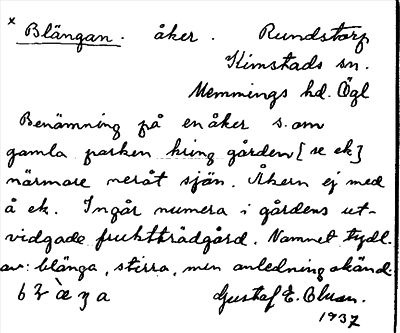 x Blängan. åker. Rundstorp
Kimstads sn.
Memmings hd. Ögl
Benämning på en åker s. om
gamla parken kring gården [se ek]
närmare neråt sjön. Åkern ej med
å ek. Ingår numera i gårdens ut-
vidgade fruktträdgård. Namnet tydl.
av: blänga, stirra, men anledning okänd.
Gustaf E. Blum.
1937